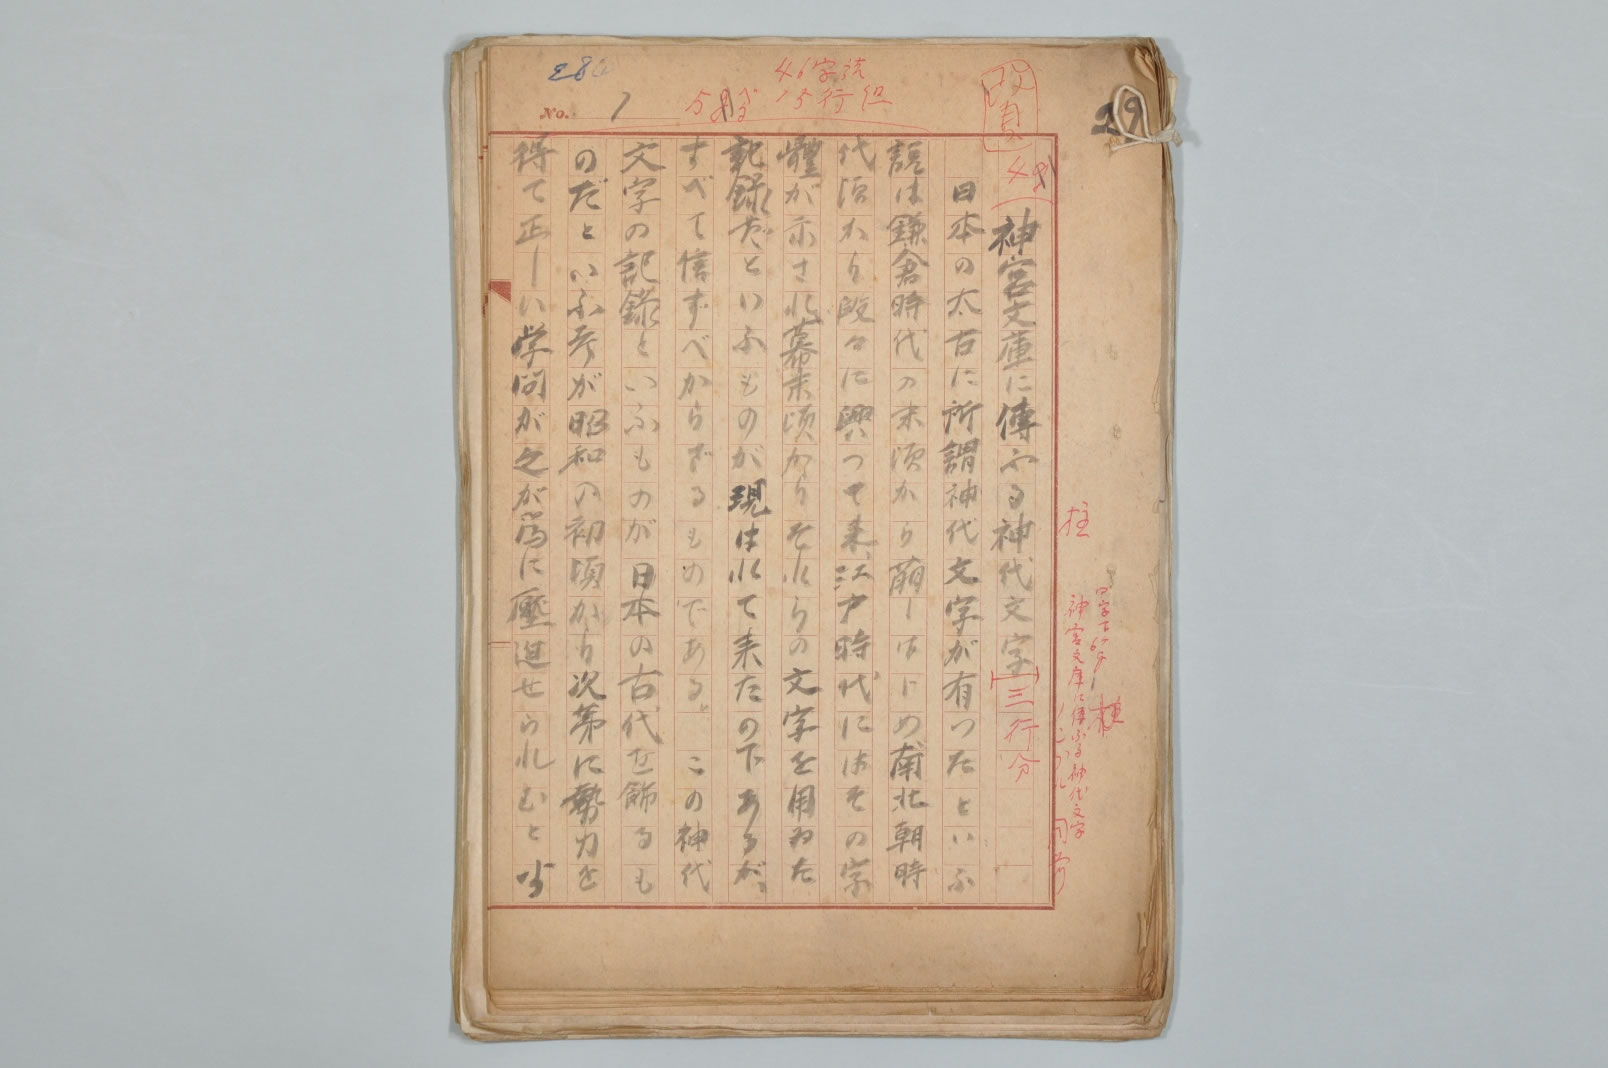 No. 1
46字詰
15行組
改頁
神宮文庫に傳ふる神代文字
三行分
日本の太古に所謂神代文字が有つたといふ
説は鎌倉時代の末頃から萠しはじめ南北朝時
代頃から段々に興つて来、江戸時代にはその字
體が示され幕末頃からそれらの文字を用ゐた
記録だといふものが現はれて来たの下あるが、
すべて信ずべからざるものである。この神代
文字の記録といふものが日本の古代を飾るも
のだといふ考が昭和の初頃から次第に勢力を
得て正しい学問が之が為に壓迫せられむと
柱
神宮文庫に傳ふる神代文字